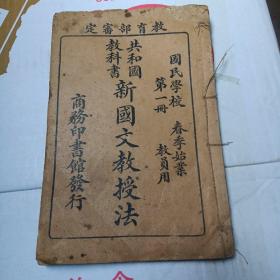 教育部審定
國民學校 春季始業
第一冊 教員用
共和國
教科書
新國文教授法
商務印書館發行